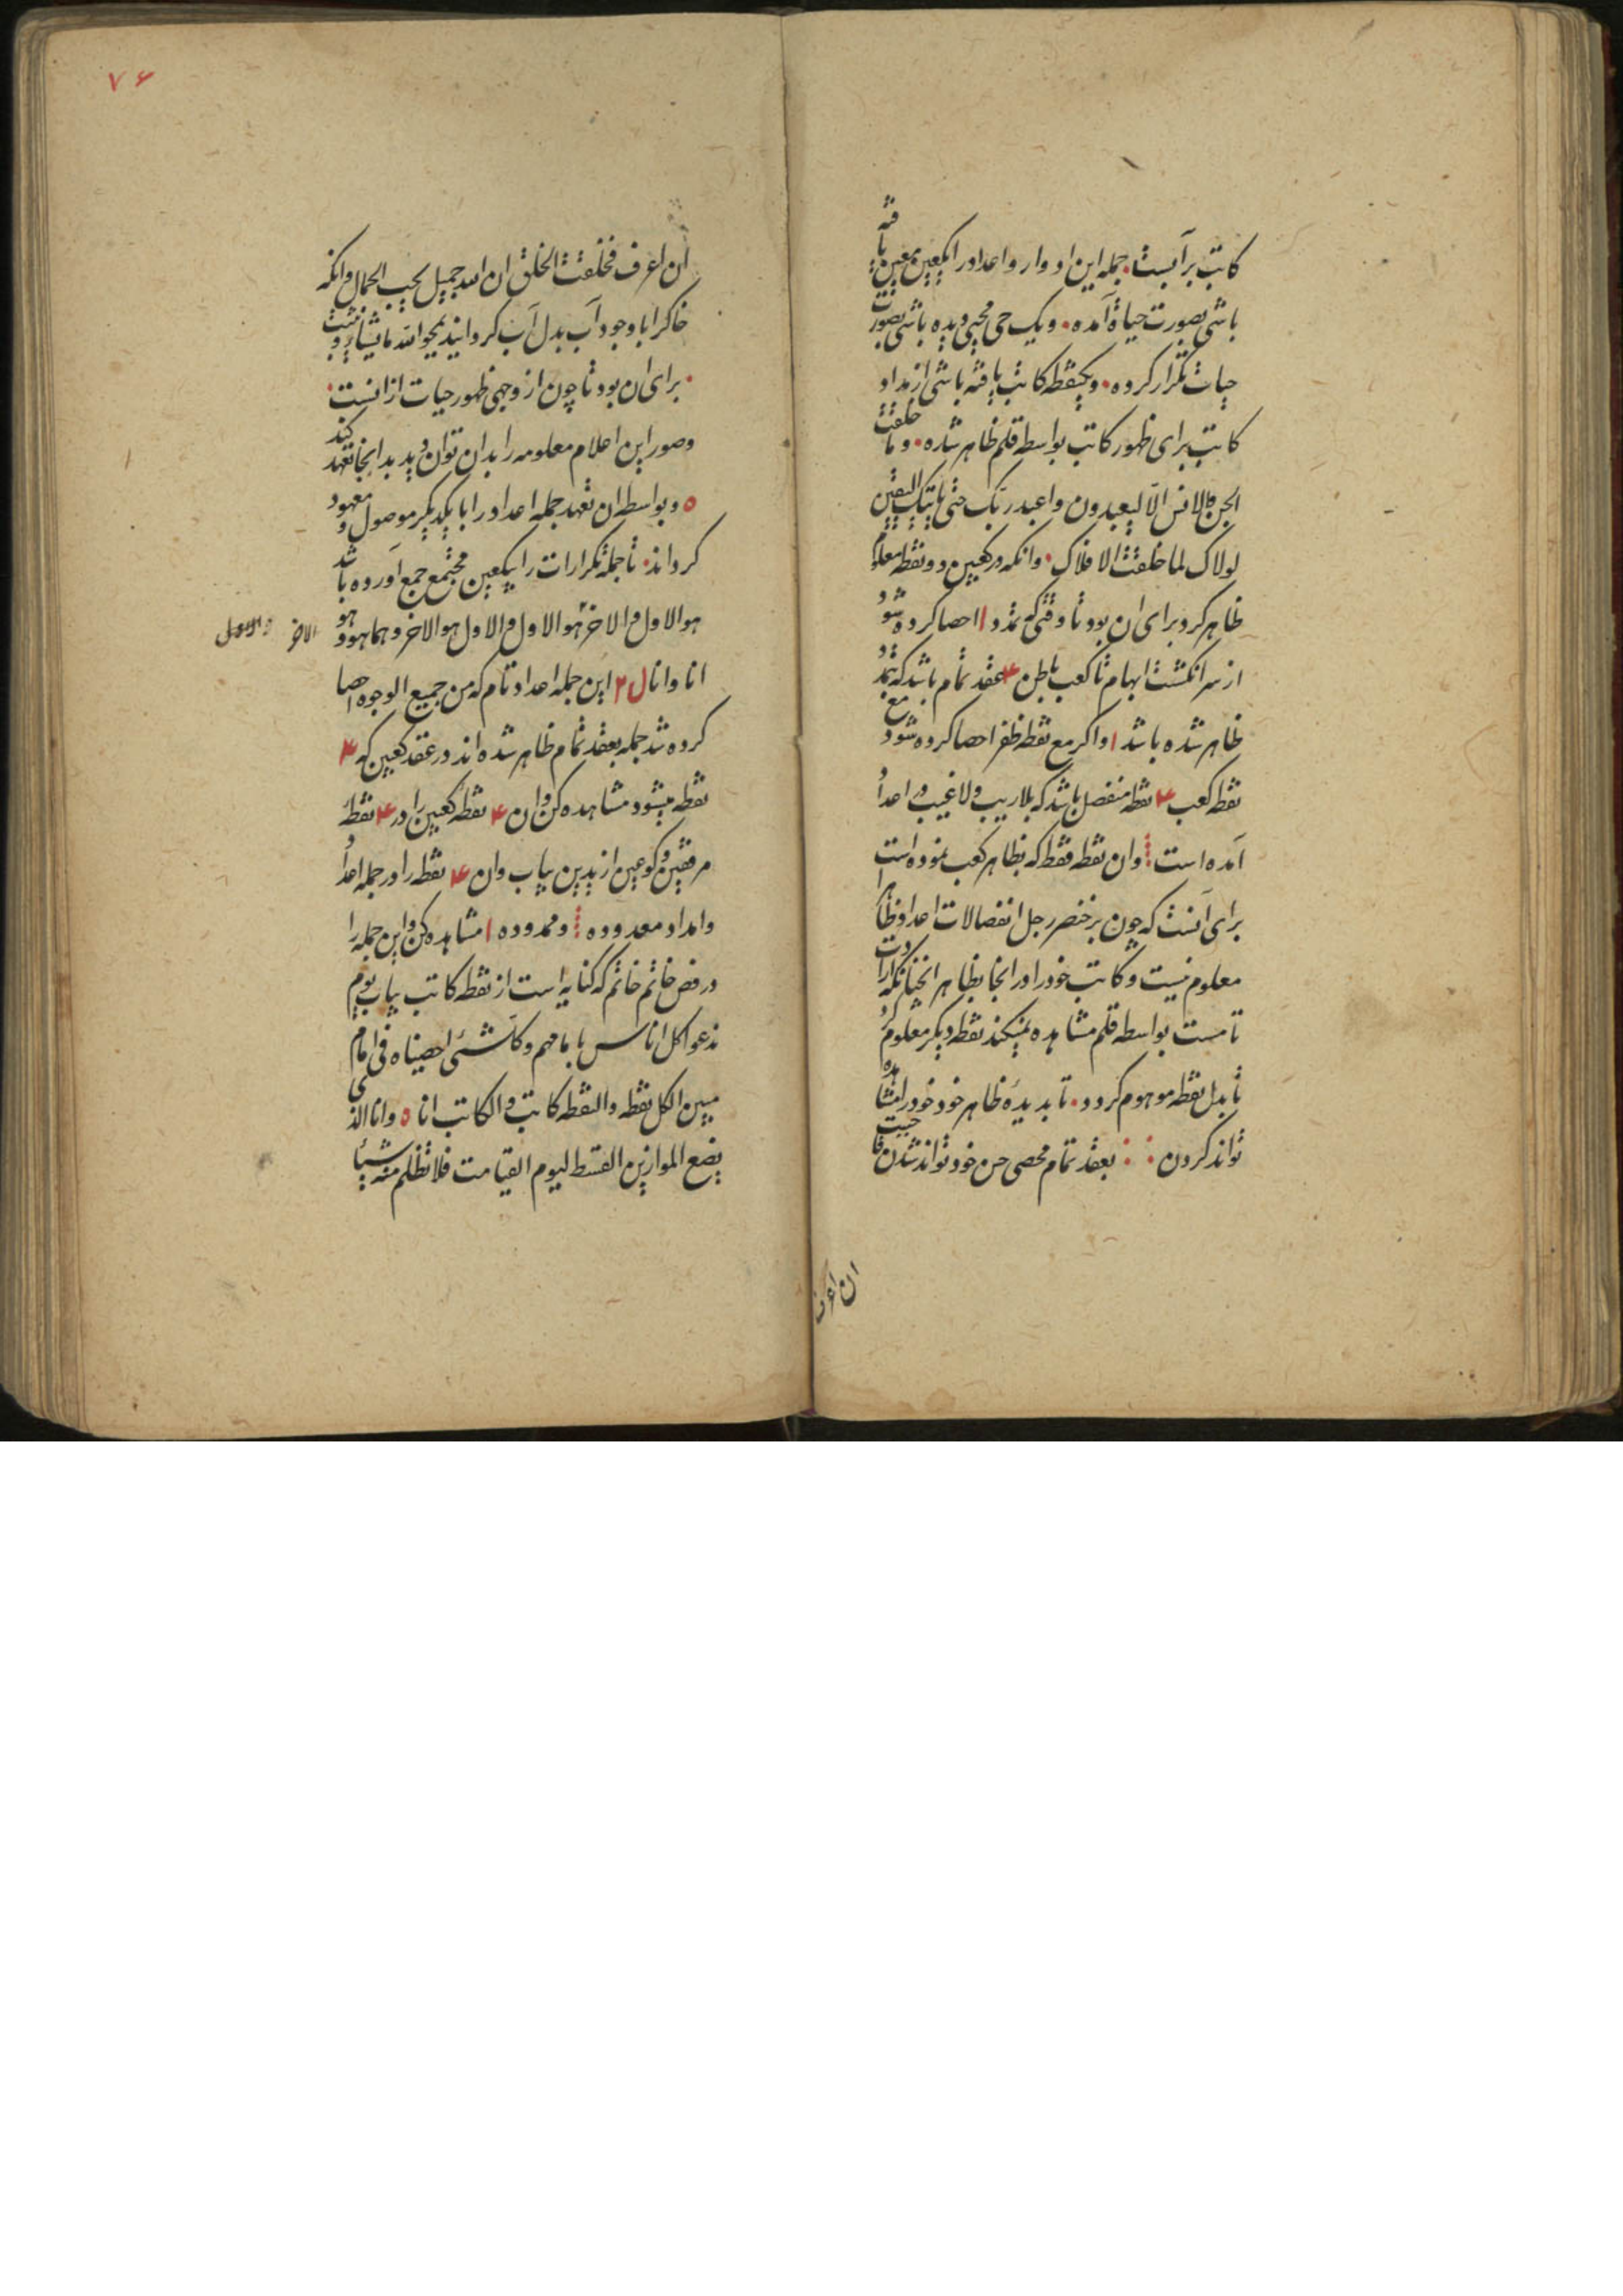 کاتب بر آبست۰ جمله این ادوار و اعداد را یکعین معین یافته
باشی بصورت حیاة آمده۰ و یک حی محیی دیده باشی بصورت
حیات تکرار کرده۰ و یکنقطه کاتب یافته باشی از مداد
کاتب برای ظهور کاتب بواسطه قلم ظاهر شده۰ و ما خلقت
الجن والانس الّا لیعبدون واعبد ربّک حتی یاتیک الیقین
لولاک لما خلقت الافلاک۰ وانکه در کعبین دو نقطه معلوم
ظاهر کرد برای ان بود تا وقتی که ممدود ا احصا کرده شود
از سر انگشت ابهام تا کعب باطن ۴ عقد تمام باشد که ممدود
ظاهر شده باشد ا و اکر مع نقطه ظفر احصا کرده شود مع
نقطه کعب ۴ نقطه منفصل باشد که بلا ریب ولا غیب در اعداد
آمده است ⁝ وان نقطه فقط که بظاهر کعب نموده است
برای آنست که چون بر خنصر رجل انفصالات اعداد ظاهرا
معلوم نیست و کاتب خود را در انجا بظاهر انچنانکه ارادت
تامست بواسطه قلم مشاهده نمیکند نقطه دیکر معلوم کرد
تا بدل نقطه موهوم کردد۰ تا بدیدهٔ ظاهر خود خود را مشاهده
تواند کردن : : بعقد تمام محصی حسن خود تواند شدن فاحببت
ان اعرف
۷۶
ان اعرف فخلقت الخلق ان الله جمیل یحب الجمال وانکه
خاکرا با وجود آب بدل آب کردانید یمحوا الله ما یشاء ویثبت
۰ برای ان بود تا چون از وجهی ظهور حیات ازانست۰
وصور این اعلام معلومه را بدان توان دید بدانجا تعهد کند
ه و بواسطه ان تعهد جمله اعداد را با یکدیکر موصول و معهود
کرداند۰ تا جمله تکرارات را یکعین مجتمع جمع آورده باشد
هو الاول والاخر هو الاول والاول هو الاخر وهما هو وهو
الاخر والاول
انا وانا ل ۲ این جمله اعداد تام که من جمیع الوجوه احصا
کرده شد جمله بعقد تمام ظاهر شده اند در عقد کعبین که ۴
نقطه میشود مشاهده کن وان ۴ نقطه کعبین را در ۴ نقطهٔ
مرفقین وکوعین از یدین بیاب وان ۴ نقطه را در جمله اعداد
وامداد معدوده ⁝ وممدوده ا مشاهده کن واین جمله را
در فص خاتم خاتم که کنایه است از نقطه کاتب بیاب یوم
ندعوا کل اناس بامامهم وکل شئ احصیناه فی امام
مبین الکل نقطه والنقطه کاتب والکاتب انا ه وانا الذی
یضع الموازین القسط الیوم القیامت فلا تظلم منه شیئا